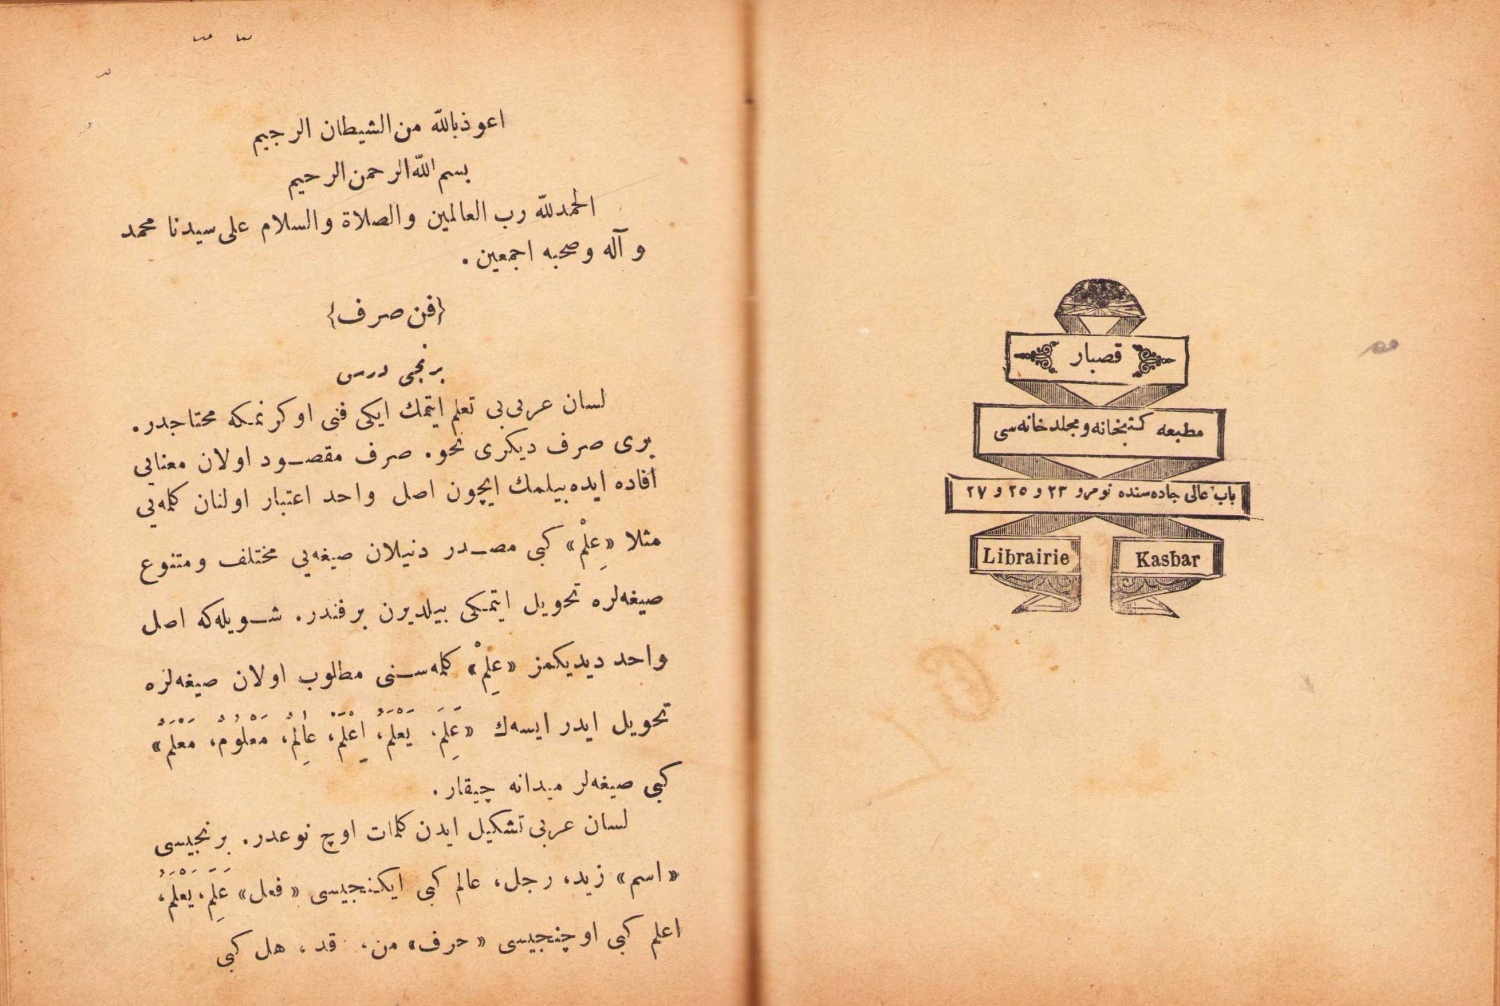 قصبار
مطبعه كتبخانه و مجلدخانه‌سی
باب عالی جاده‌سنده نومرو ٢٣ و ٢٥ و ٢٧
Librairie Kasbar
اعوذ بالله من الشيطان الرجيم
بسم الله الرحمن الرحيم
الحمدلله رب العالمين والصلاة والسلام على سيدنا محمد
و آله و صحبه اجمعين .
{فن صرف}
برنجی درس
لسان عربی‌یی تعلم ایتمك ایكی فنی اوكرنمكه محتاجدر.
بری صرف دیكری نحو. صرف مقصود اولان معنایی
افاده ایده‌بیلمك ایچون اصل واحد اعتبار اولنان كله‌یی
مثلا «عِلْم» كبی مصدر دنیلان صیغه‌یی مختلف و متنوع
صیغه‌لره تحویل ایتمكی بیلدیرن بر فندر. شویله‌كه اصل
واحد دیدیكمز «عِلِمْ» كله‌سنی مطلوب اولان صیغه‌لره
تحویل ایدر ایسه‌ك «عَلِمَ، يَعْلَمُ، اِعْلَمْ، عٰالِمٌ، مَعْلُومٌ، مَعْلَمٌ»
كبی صیغه‌لر میدانه چیقار.
لسان عربی تشكیل ایدن كلمات اوچ نوعدر. برنجیسی
«اسم» زید، رجل، عالم كبی ایكنجیسی «فعل» عَلِمَ، يَعْلَمُ،
اعلم كبی اوچنجیسی «حرف» من، قد، هل كبی